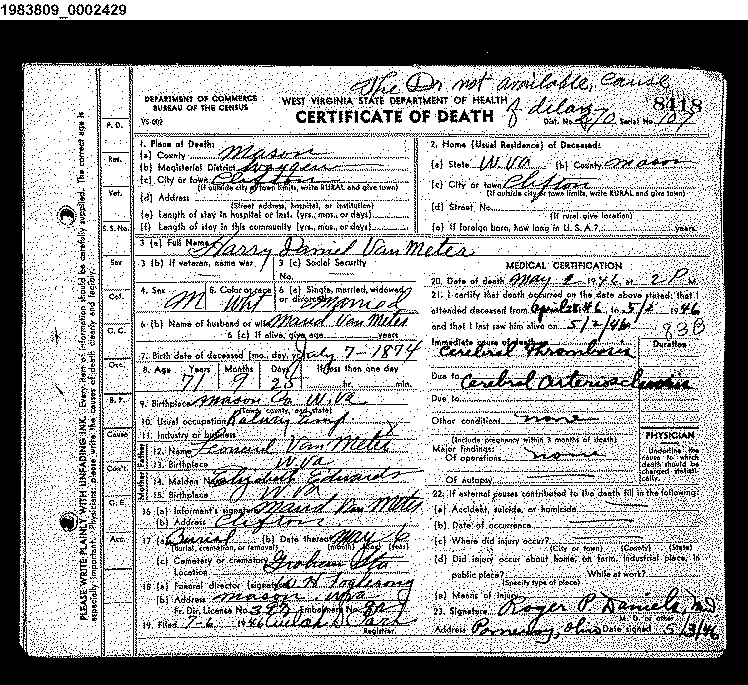 1983809_0002429
The Dr not available, cause
of delay
DEPARTMENT OF COMMERCE
BUREAU OF THE CENSUS
WEST VIRGINIA STATE DEPARTMENT OF HEALTH
8418
VS-002
CERTIFICATE OF DEATH
Dist. No. 270 Serial No. 107
1. Place of Death:
(a) County Mason
(b) Magisterial District
(c) City or town Clifton
(If outside city or town limits, write RURAL and give town)
(d) Address
(Street address, hospital, or institution)
(e) Length of stay in hospital or last (yrs., mos., or days)
(f) Length of stay in this community (yrs., mos., or days)
2. Home (Usual Residence) of Deceased:
(a) State W. Va (b) County Mason
(c) City or town Clifton
(If outside city or town limits, write RURAL and give town)
(d) Street No.
(If rural give location)
(e) If foreign born, how long in U. S. A.? years
3 (a) Full Name Harry Daniel Van Meter
3 (b) If veteran, name war 3 (c) Social Security
No.
4. Sex 5. Color or race 6 (a) Single, married, widowed
or divorced
M Wht Married
6 (b) Name of husband or wife Maud Van Meter
6 (c) If alive, give age years
7. Birth date of deceased (mo., day, yr.) July 7-1874
8. Age Years Months Days If less than one day
71 9 25 hr. min.
9. Birthplace Mason Co W. Va
(Town, county, and state)
10. Usual occupation Railway Emp
11. Industry or business
Father
12. Name Van Meter
13. Birthplace W. Va
Mother
14. Maiden Name Elizabeth Edwards
15. Birthplace W Va
16 (a) Informant's signature Maud Van Meter
(b) Address Clifton
17 (a) Burial (b) Date thereof May 6
(Burial, cremation, or removal) (month) (day) (year)
(c) Cemetery or crematory Graham Sta
Location
18 (a) Funeral director (signature)
(b) Address Mason W. Va
Fr. Dir. License No. Embalmer No.
19. Filed 7-6 1946
Registrar.
MEDICAL CERTIFICATION
20. Date of death May 2 1946 at 2 P. M.
21. I certify that death occurred on the date above stated; that I
attended deceased from April 28 46 to 5/2 1946
and that I last saw him alive on 5/2/46
Immediate cause of death Duration
Cerebral Thrombosis
Due to Cerebral arteriosclerosis
Due to
Other conditions none
(Include pregnancy within 3 months of death)
Major findings:
Of operations none
Of autopsy
PHYSICIAN
Underline the cause to which death should be charged statistically.
22. If external causes contributed to the death fill in the following:
(a) Accident, suicide, or homicide
(b) Date of occurrence
(c) Where did injury occur?
(City or town) (County) (State)
(d) Did injury occur about home, on farm, industrial place, in
public place? While at work?
(Specify type of place)
(e) Means of injury
23. Signature Roger P. Daniels, M.D
M. D. or other
Address Pomeroy, Ohio Date signed 5/3/46
P. D.
Res.
Vet.
S. S. No.
Sex
Col.
O. C.
Occ.
B. P.
Cause
Con't.
C. E.
Acc.
PLEASE WRITE PLAINLY WITH UNFADING INK. Every item of information should be carefully supplied. The correct age is
especially important. Physicians: please write the causes of death clearly and legibly.